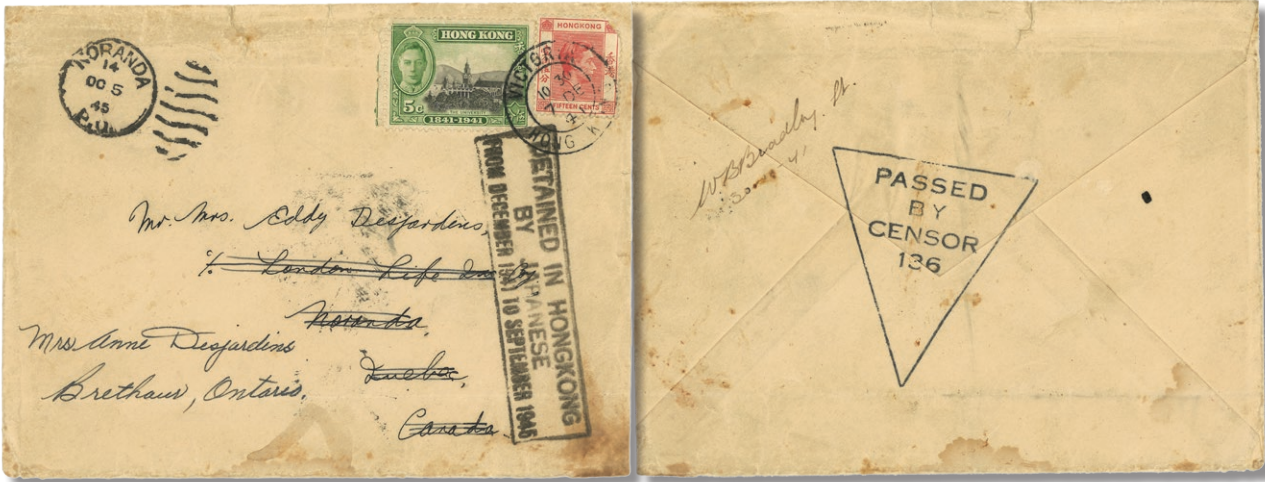 NORANDA
14
OC 5
45
P.Q.
HONG KONG
5c
THE UNIVERSITY
1841-1941
HONGKONG
FIFTEEN CENTS
VICTORIA
10 30
7 DE
41
HONG K
DETAINED IN HONGKONG
BY JAPANESE
FROM DECEMBER 1941 TO SEPTEMBER 1945
Mr. Mrs. Eddy Desjardins,
% London Life Ins Co
Noranda
Quebec
Canada
Mrs Anne Desjardins
Brethour, Ontario.
W.B. Bradley
PASSED
BY
CENSOR
136